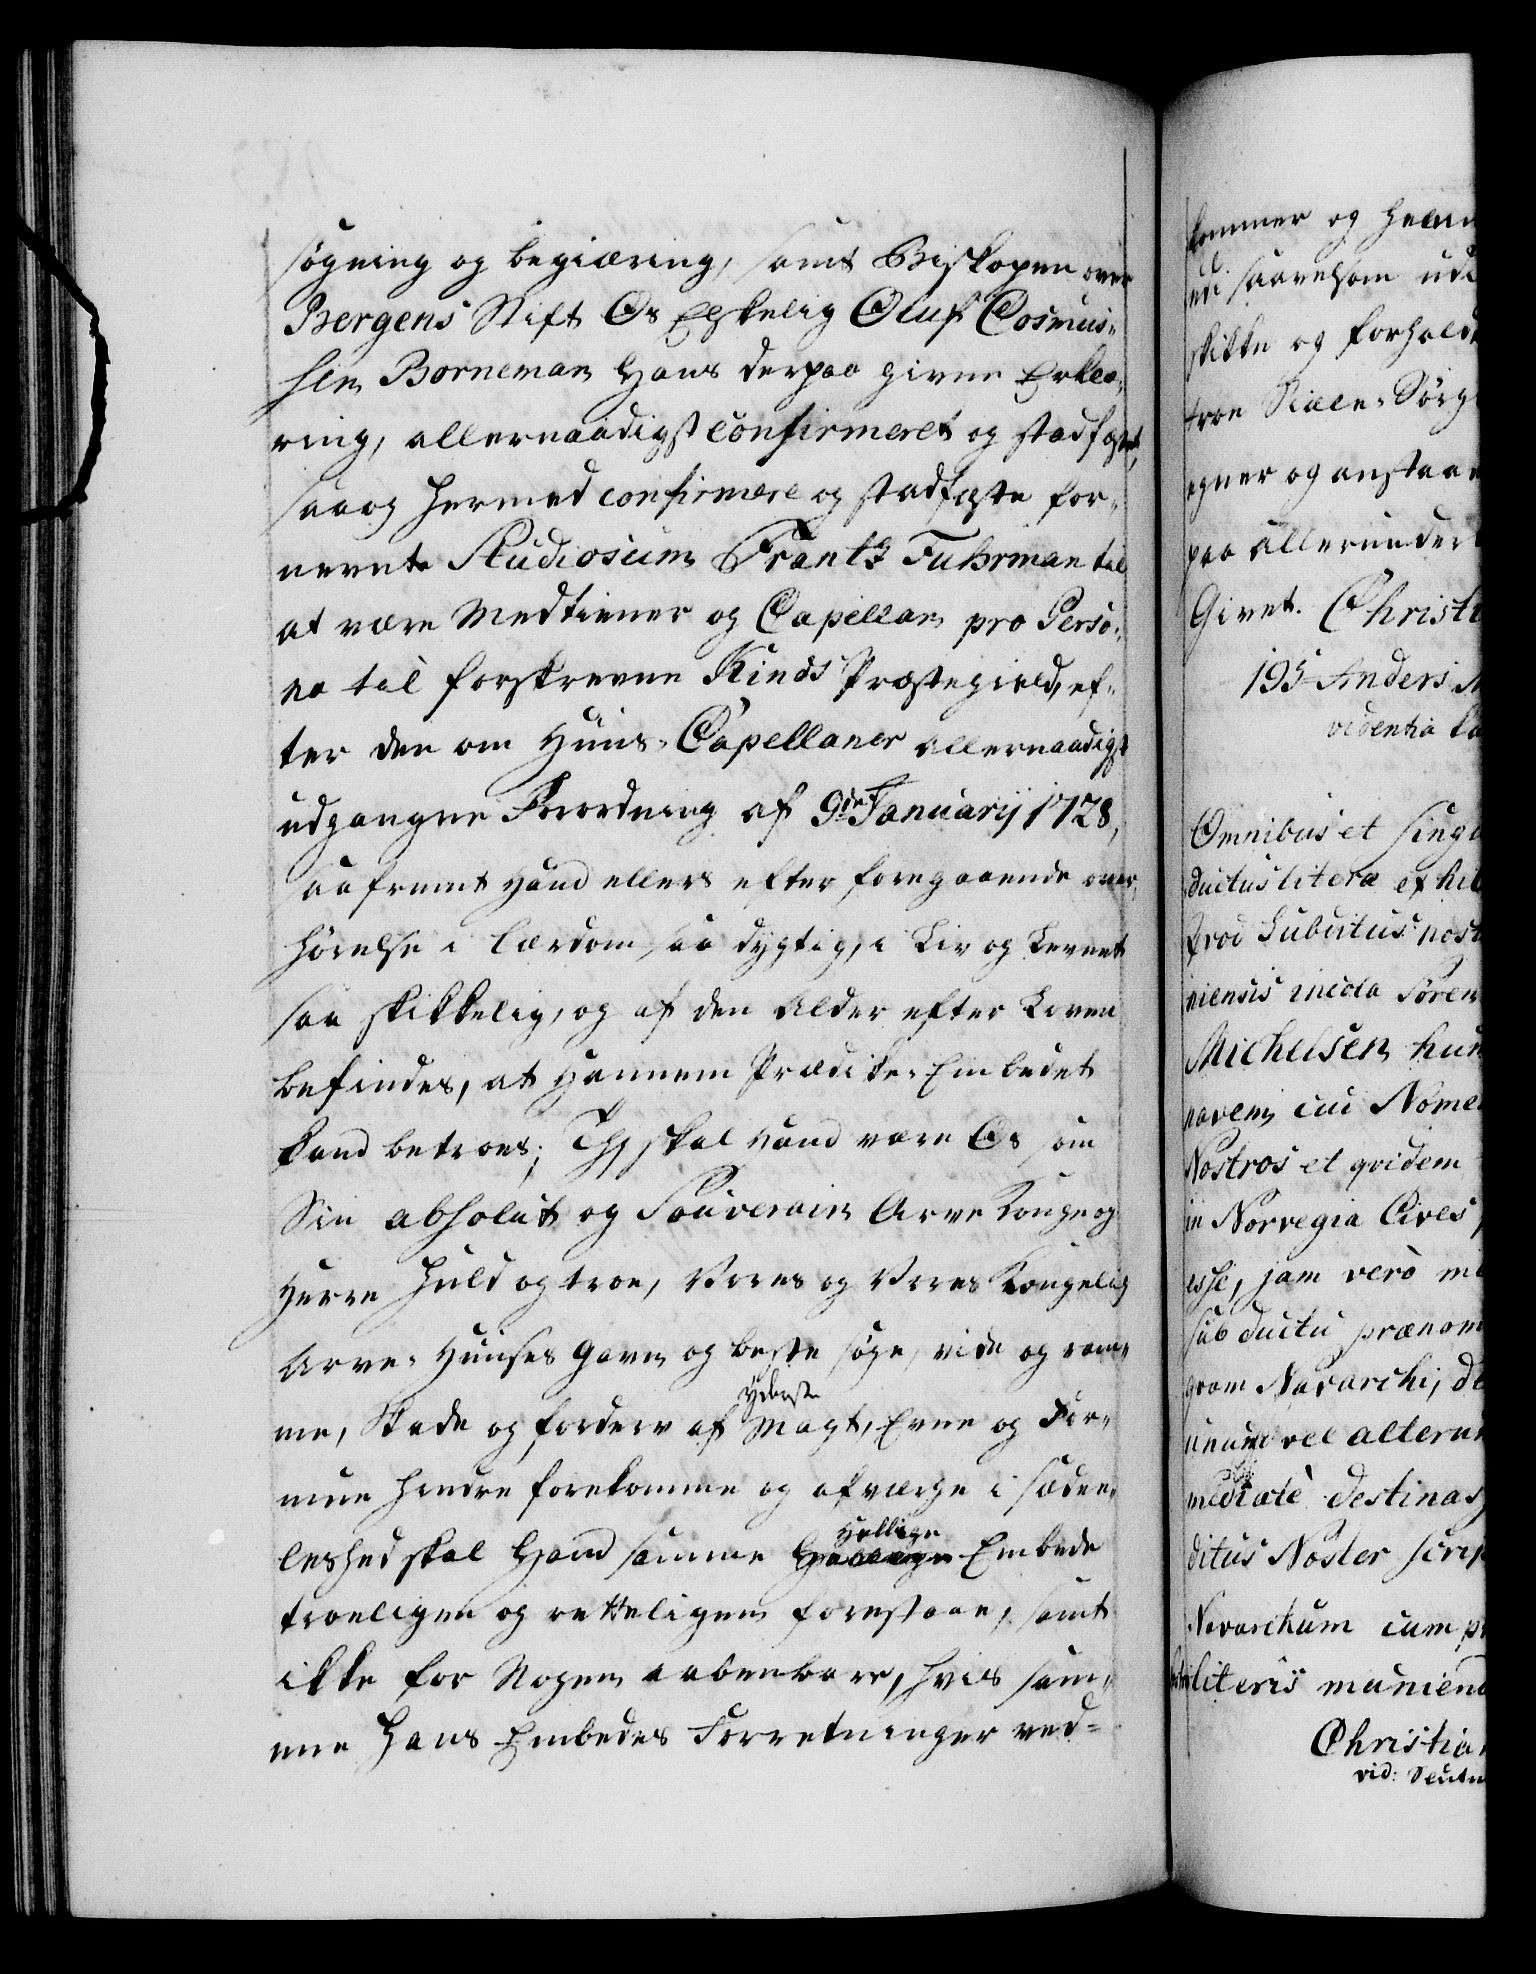 søgning og begiæring, samt Biskopen over
Bergens Stift Os Elskelig Oluf Cosmus-
sen Borneman Hans derpaa givne Erklæ-
ring, allernaadigst confirmeret og stadfæstet,
saa og hermed confirmere og stadfæste for-
nevnte Studiosum Frantz Fuhrman til
at være Medtiener og Capellan pro Perso-
na til forskrevne Kinds Præstegield, ef-
ter den om Huus-Capellaner allernaadigst
udgangne Forordning af 9de Januarij 1728,
saafremt Hand ellers efter foregaaende over-
hørelse i Lærdom saa dygtig, i Liv og Levnet
saa skikkelig, og af den Alder efter Loven
befindes, at Hannem Prædike-Embedet
kand betroes; Thj skal Hand være Os som
Sin absolut og Souverain Arve Konge og
Herre huld og troe, Vores og Vores Kongelig
Arve-Huuses Gavn og beste søge, vide og ram-
me, Skade og forderv af yderste Magt, Evne og For-
mue hindre forekomme og afværge i sædee-
leshed skal Hand samme Hellige Embede
troeligen og retteligen forestaae, samt
ikke for Nogen aabenbare, hvis sam-
me Hans Embedes Forretninger ved-
kommer og
saavelsom ud
skikke og forhold
troe Siæle-Sørg
egner og anstaar
paa allerunder
Givet. Christi
195 Anders
videntia
Omnibus et singu
ductus litera exhib
Qvod Subditus nost
niensis incola Søren
Michelsen hun
navem cui Nome
Nostros et qvidem
in Norvegia Cives
esse, jam verò
sub ductu prænom
Navarchi, de
unum vel allerum
mediatè destinas
ditus Noster scrip
Navarchum cum p
literis muniend
Christian
vid: